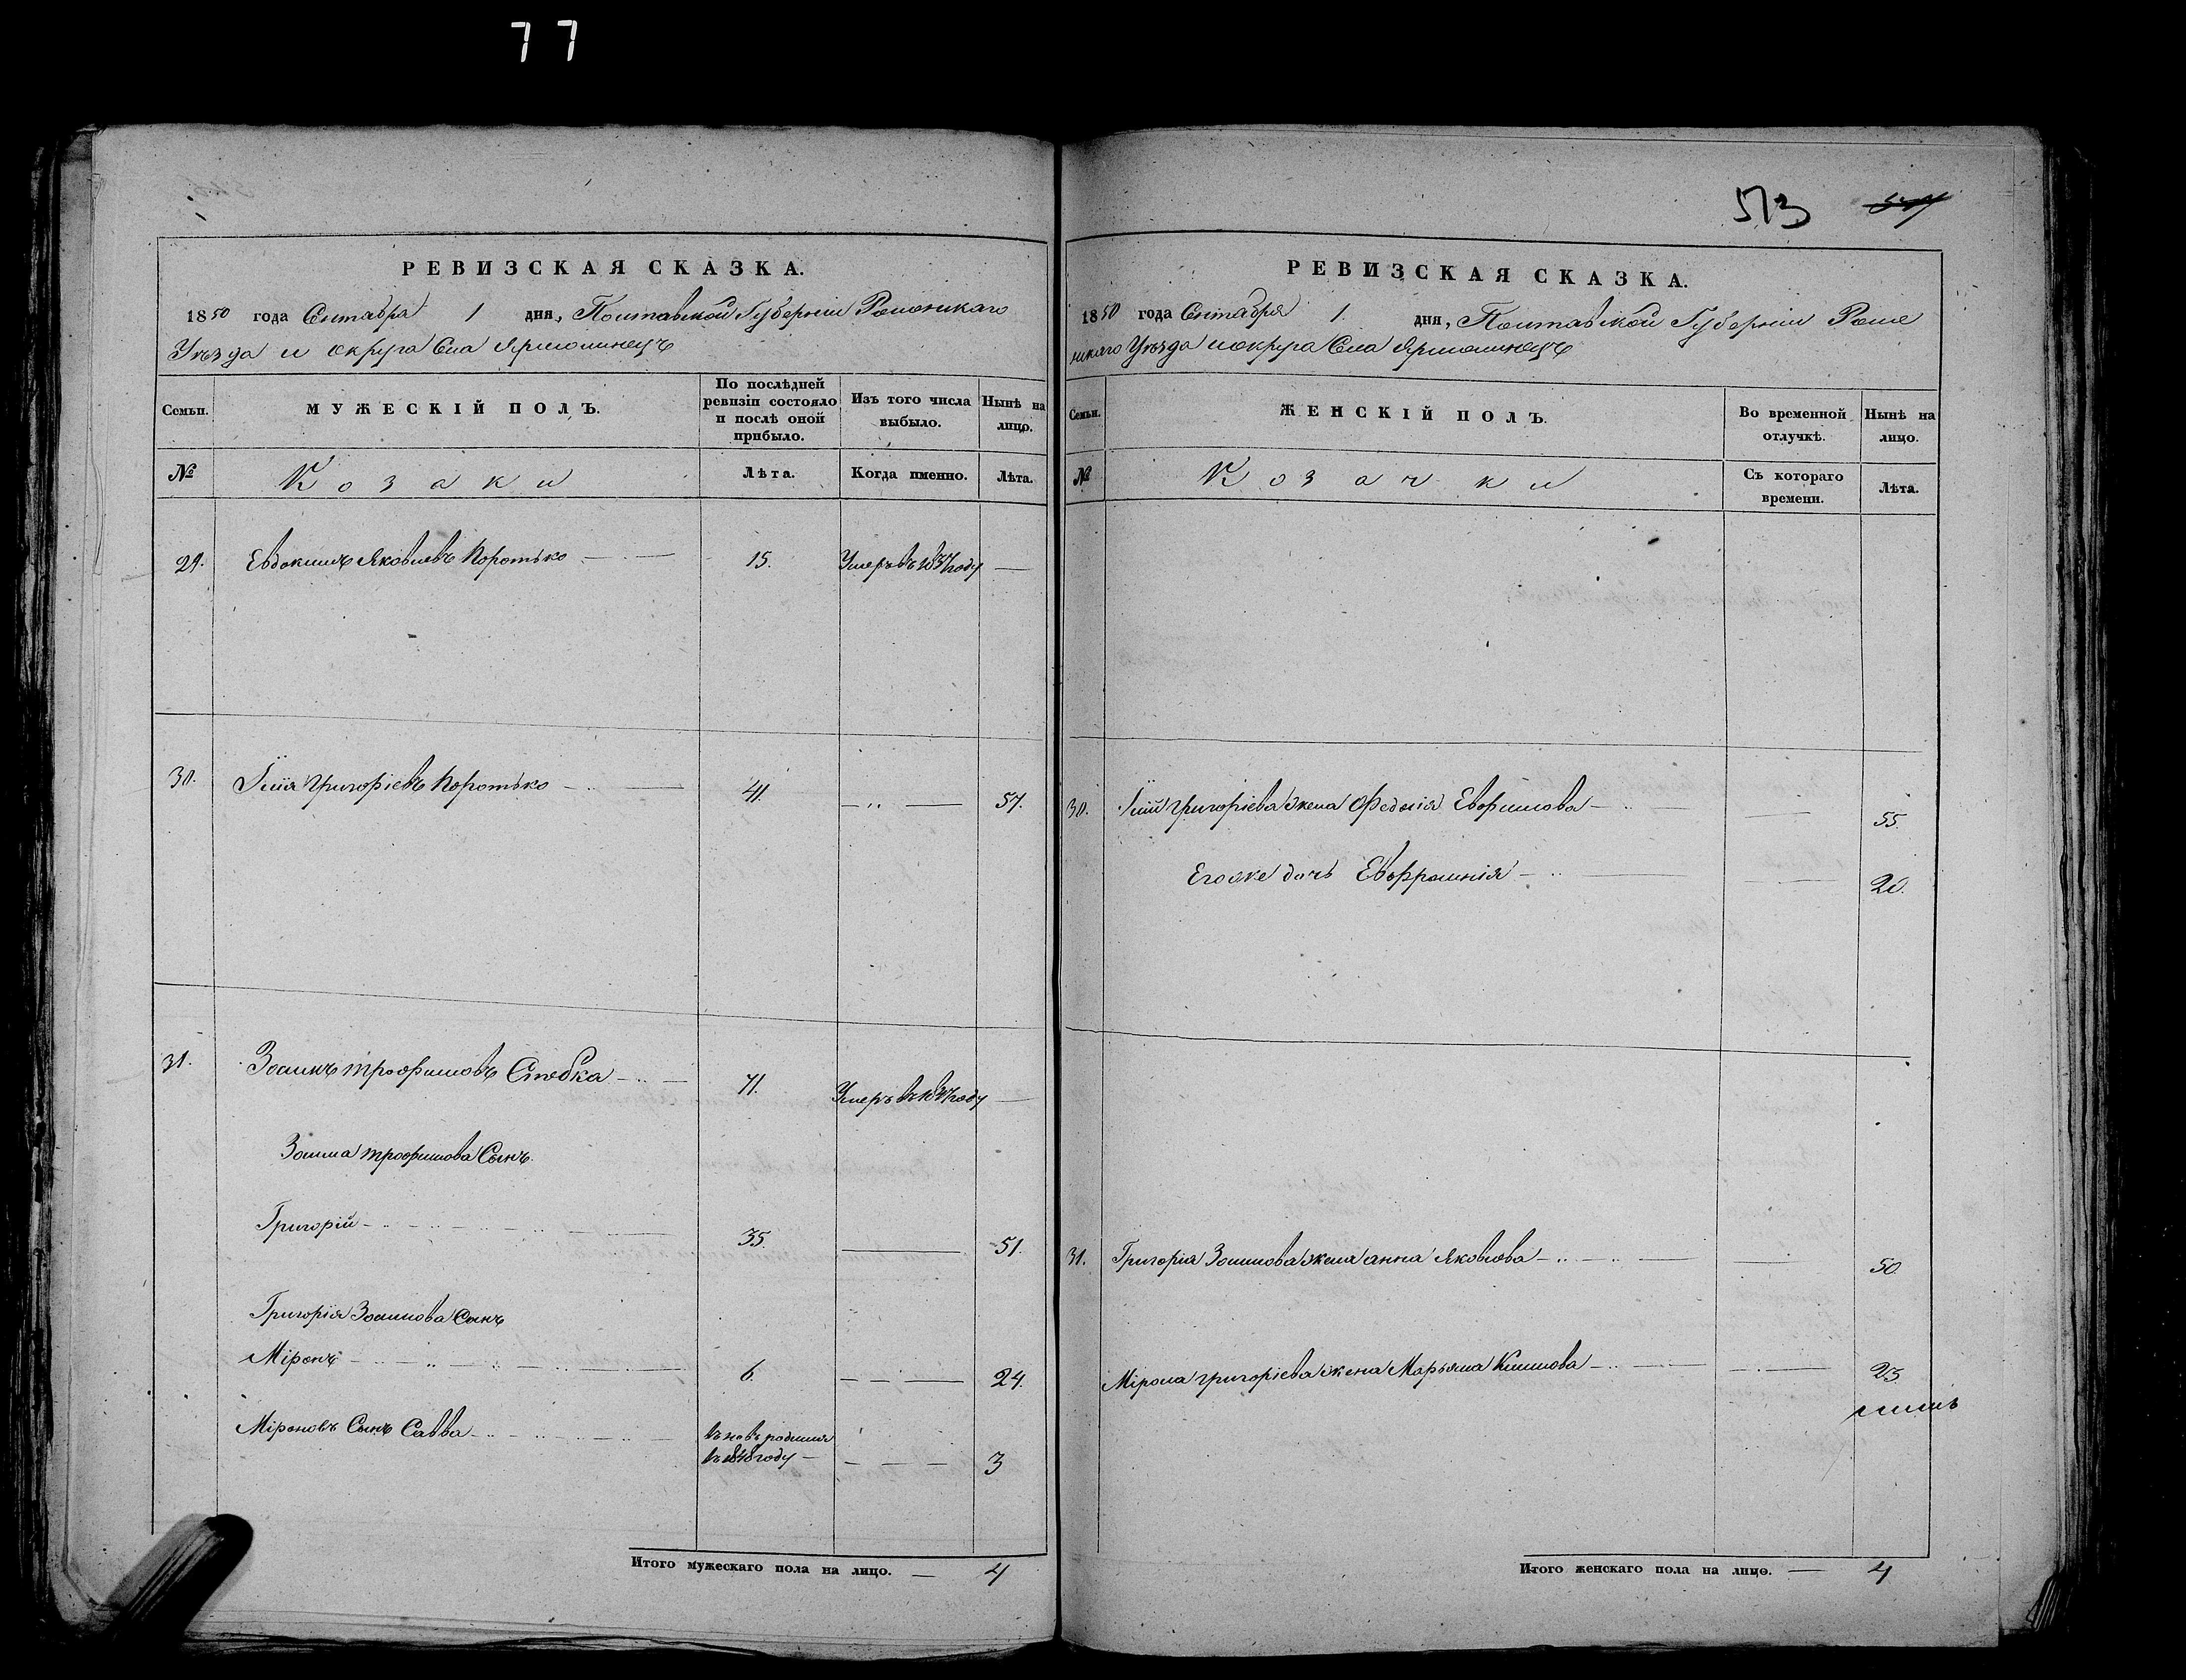 77
РЕВИЗСКАЯ СКАЗКА.
1850 года Сентября 1 дня, Полтавской Губерніи Роменскаго
Уѣзда и округа Села Ярмолинецъ
Семьи. МУЖЕСКІЙ ПОЛЪ. По послѣдней ревизіи состояло и послѣ оной прибыло. Изъ того числа выбыло. Нынѣ на лицо.
№ Козаки Лѣта. Когда именно. Лѣта.
29. Евдокимъ Яковлевъ Коротько 15. Умеръ въ 1837 году
30. Илія Григоріевъ Коротько 41. 57.
31. Зосимъ Трофимовъ Стебка 71. Умеръ въ 1837 году
Зосима Трофимова Сынъ
Григорій 35. 51.
Григорія Зосимова Сынъ
Міронъ 6. 24.
Міроновъ Сынъ Савва вновь родился
въ 1848 году 3
Итого мужескаго пола на лицо. 4
513
РЕВИЗСКАЯ СКАЗКА.
1850 года Сентября 1 дня, Полтавской Губерніи Роме
нскаго Уѣзда и округа Села Ярмолинецъ
Семьи. ЖЕНСКІЙ ПОЛЪ. Во временной отлучкѣ. Нынѣ на лицо.
№ Козачки Съ котораго времени. Лѣта.
30. Иліи Григоріева жена Федосія Ефимова 55.
Егоже дочь Евфросинія 20.
31. Григорія Зосимова жена Анна Яковлева 50.
Мірона Григоріева жена Марьяна Климова 23.
Итого женскаго пола на лицо. 4